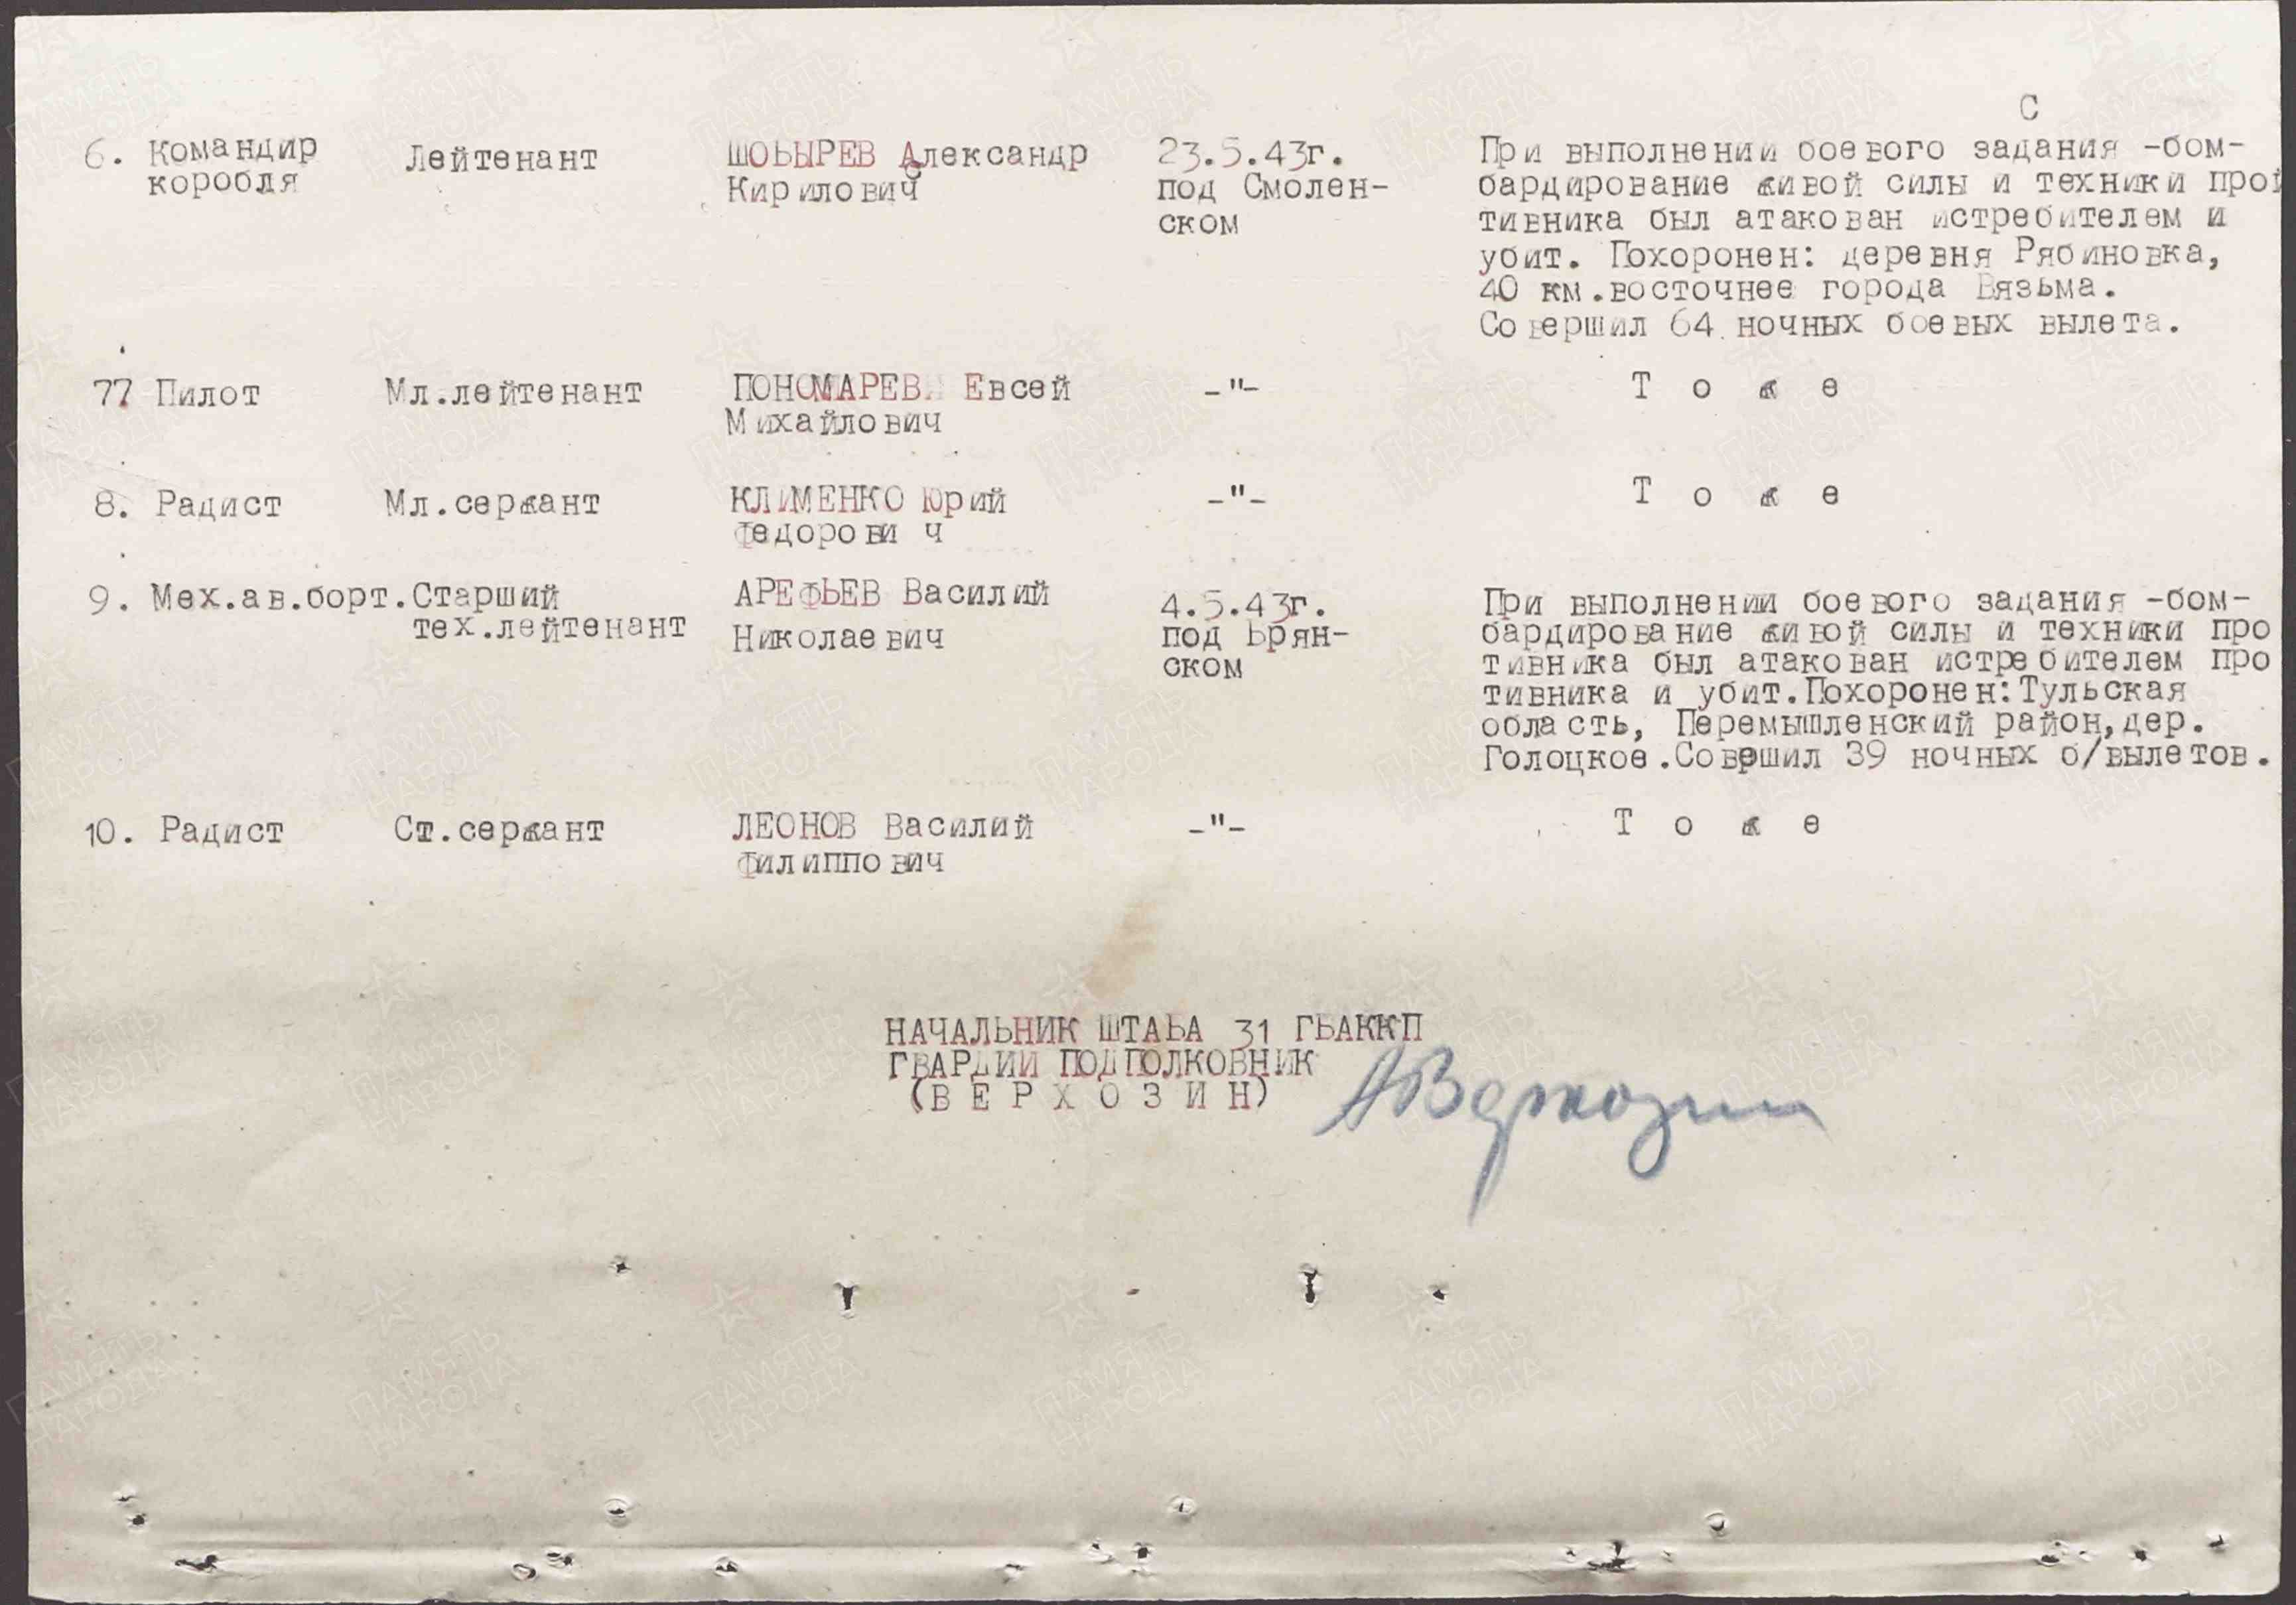 С
6. Командир Лейтенант ШОБЫРЕВ Александр 23.5.43г. При выполнении боевого задания -бом-
коробля Кирилович под Смолен- бардирование живой силы и техники про
ском тивника был атакован истребителем и
убит. Похоронен: деревня Рябиновка,
40 км.восточнее города Вязьма.
Совершил 64 ночных боевых вылета.
77 Пилот Мл.лейтенант ПОНОМАРЕВ Евсей -"- Т о ж е
Михайлович
8. Радист Мл.сержант КЛИМЕНКО Юрий -"- Т о ж е
Федорови ч
9. Мех.ав.борт. Старший АРЕФЬЕВ Василий 4.5.43г. При выполнении боевого задания -бом-
тех.лейтенант Николаевич под Брян- бардирование живой силы и техники про
ском тивника был атакован истребителем про
тивника и убит.Похоронен:Тульская
область, Перемышленский район,дер.
Голоцкое.Совершил 39 ночных б/вылетов.
10. Радист Ст.сержант ЛЕОНОВ Василий -"- Т о ж е
Филиппович
НАЧАЛЬНИК ШТАБА 31 ГБАККП
ГВАРДИИ ПОДПОЛКОВНИК
(В Е Р Х О З И Н) АВерхозин
ПАМЯТЬ
НАРОДА